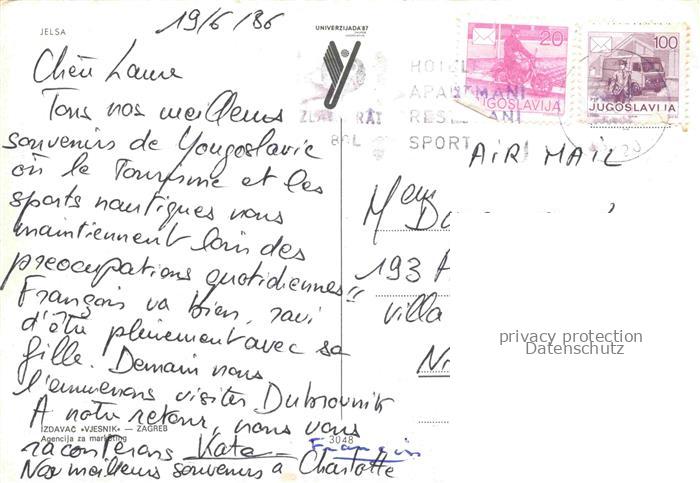 JELSA
19/6/86
UNIVERZIJADA'87
Chère Laure
Tous nos meilleurs
souvenirs de Yougoslavie
où le Tourisme et les
sports nautiques nous
maintiennent loin des
préoccupations quotidiennes!!
François va bien, ravi
d'être pleinement avec sa
fille. Demain nous
l'emmenons visiter Dubrovnik
A notre retour, nous vous
raconterons Kata François
Nos meilleurs souvenirs à Charlotte
IZDAVAČ »VJESNIK« — ZAGREB
Agencija za marketing
3048
20
JUGOSLAVIJA
100
JUGOSLAVIJA
HOTEL
APARTMANI
RESTORANI
SPORT
ZLATNI RAT
BOL
AIR MAIL
193
Villa
privacy protection
Datenschutz